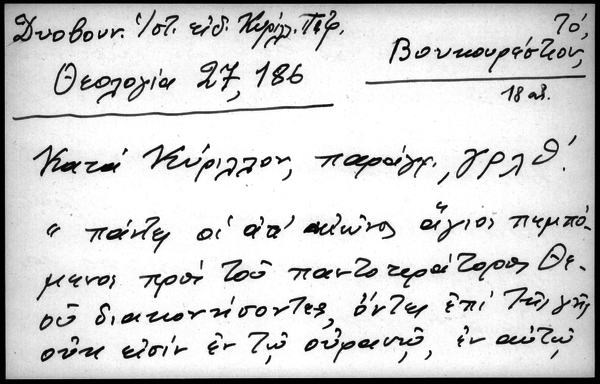 Δυοβουν. Ἱστ. εἰδ. Κυρίλλ. Πέτρ.
Τό,
Βουκουρέστιον,
Θεολογία 27, 186
18 αἰ.
Κατά Κύριλλον, παράγρ.,
" πάντες οἱ ἀπ' αἰῶνος ἅγιοι πεμπό-
μενοι πρός τοῦ παντοκράτορος Θε-
οῦ διακονήσοντες, ὄντες ἐπί τῆς γῆς
οὔκ εἰσίν ἐν τῷ οὐρανῷ, ἐν αὐτῷ